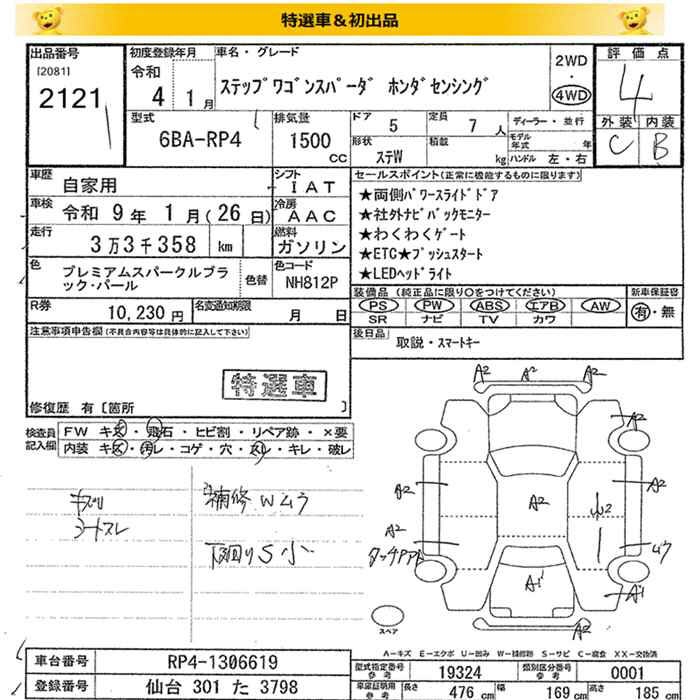 特選車＆初出品
出品番号
[2081]
2121
初度登録年月
令和
4 1月
車名・グレード
ステップワゴンスパーダ ホンダセンシング
2WD
・
4WD
評価点
4
型式
6BA-RP4
排気量
1500
CC
ドア 5
定員 7人
ディーラー・並行
モデル年式 年
形状 ステW
積載 kg
ハンドル 左・右
外装 内装
C B
車歴 自家用
シフト IAT
車検 令和 9年 1月(26日)
冷房 AAC
走行 3万3千358 km
燃料 ガソリン
セールスポイント(正常に機能するものに限ります)
★両側パワースライドドア
★社外ナビバックモニター
★わくわくゲート
★ETC★プッシュスタート
★LEDヘッドライト
色 プレミアムスパークルブラック・パール
色替
色コード NH812P
R券 10,230円
名変通知期限
月 日
装備品 (純正品に限り○をつけてください)
PS PW ABS エアB AW
SR ナビ TV カワ
新車保証書
有・無
注意事項申告欄(不具合内容等は具体的に記入して下さい)
後日品 取説・スマートキー
特選車
修復歴 有〔箇所 〕
検査員記入欄
FW キズ・飛石・ヒビ割・リペア跡・×要
内装 キズ・汚レ・コゲ・穴・スレ・キレ・破レ
シートスレ
補修Wムラ
下回りS小
A2 A2 A2
A2
A2
A2
A2
A2
A2
タッチアト
W2
ムラ
A1
A1
A2
スペア
A－キズ E－エクボ U－凹み W－補修跡 S－サビ C－腐食 XX－交換済
車台番号 RP4-1306619
登録番号 仙台 301 た 3798
型式指定番号 参考 19324
類別区分番号 参考 0001
車庫証明用 参考
長さ 476 cm
幅 169 cm
高さ 185 cm